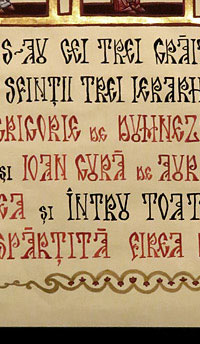 S-AU CEI TREI CRĂI
SFINȚII TREI IERARH
GRIGORIE DE DUMNEZ
ȘI IOAN GURĂ DE AUR
EA ȘI ÎNTRU TOAT
SPĂRȚITĂ FIREA